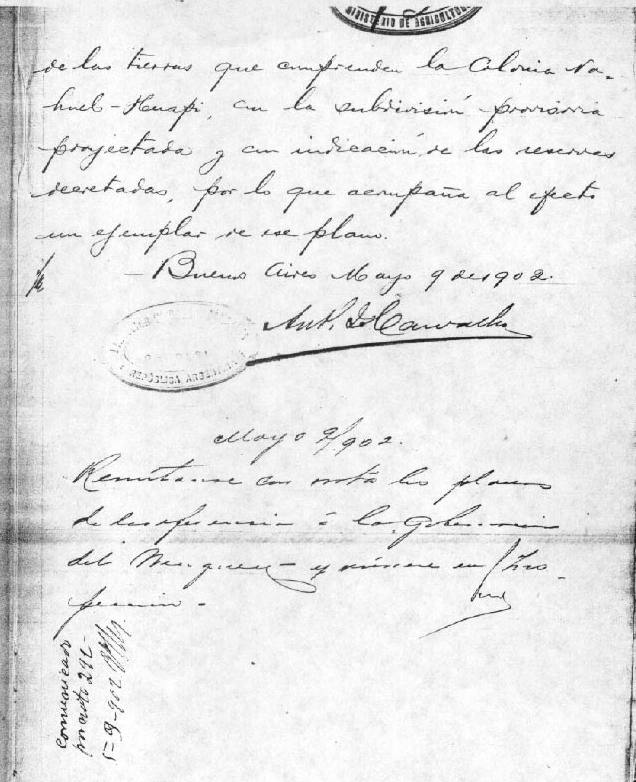 de las tierras que comprenden la Colonia Na-
huel-Huapi, con la subdivisión provisoria
projectada y con indicación de las reservas
decretadas, por lo que acompaña al efecto
un ejemplar de ese plano.
- Buenos Aires Mayo 9 de 1902.
Ant. de Carvalho
Mayo 9/902.
Remítanse con nota los planos
de la referencia á la Gobernación
del Neuquen - y
comunicado
por nota 292
5-9-902